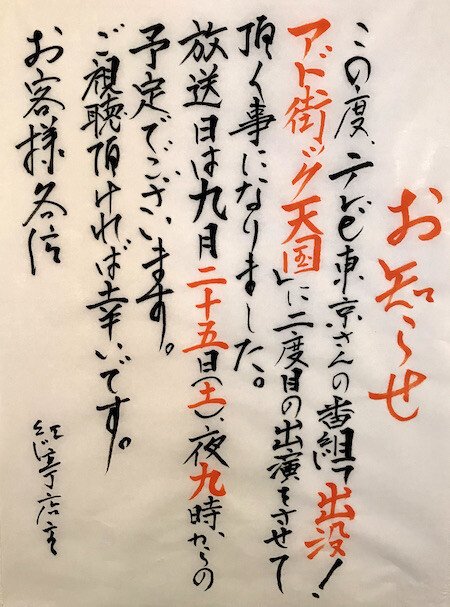 お知らせ
この度、テレビ東京さんの番組「出没!
アド街ック天国」に二度目の出演をさせて
頂く事になりました。
放送日は九月二十五日(土)、夜九時からの
予定でございます。
ご視聴頂ければ幸いです。
お客様各位
亭店主